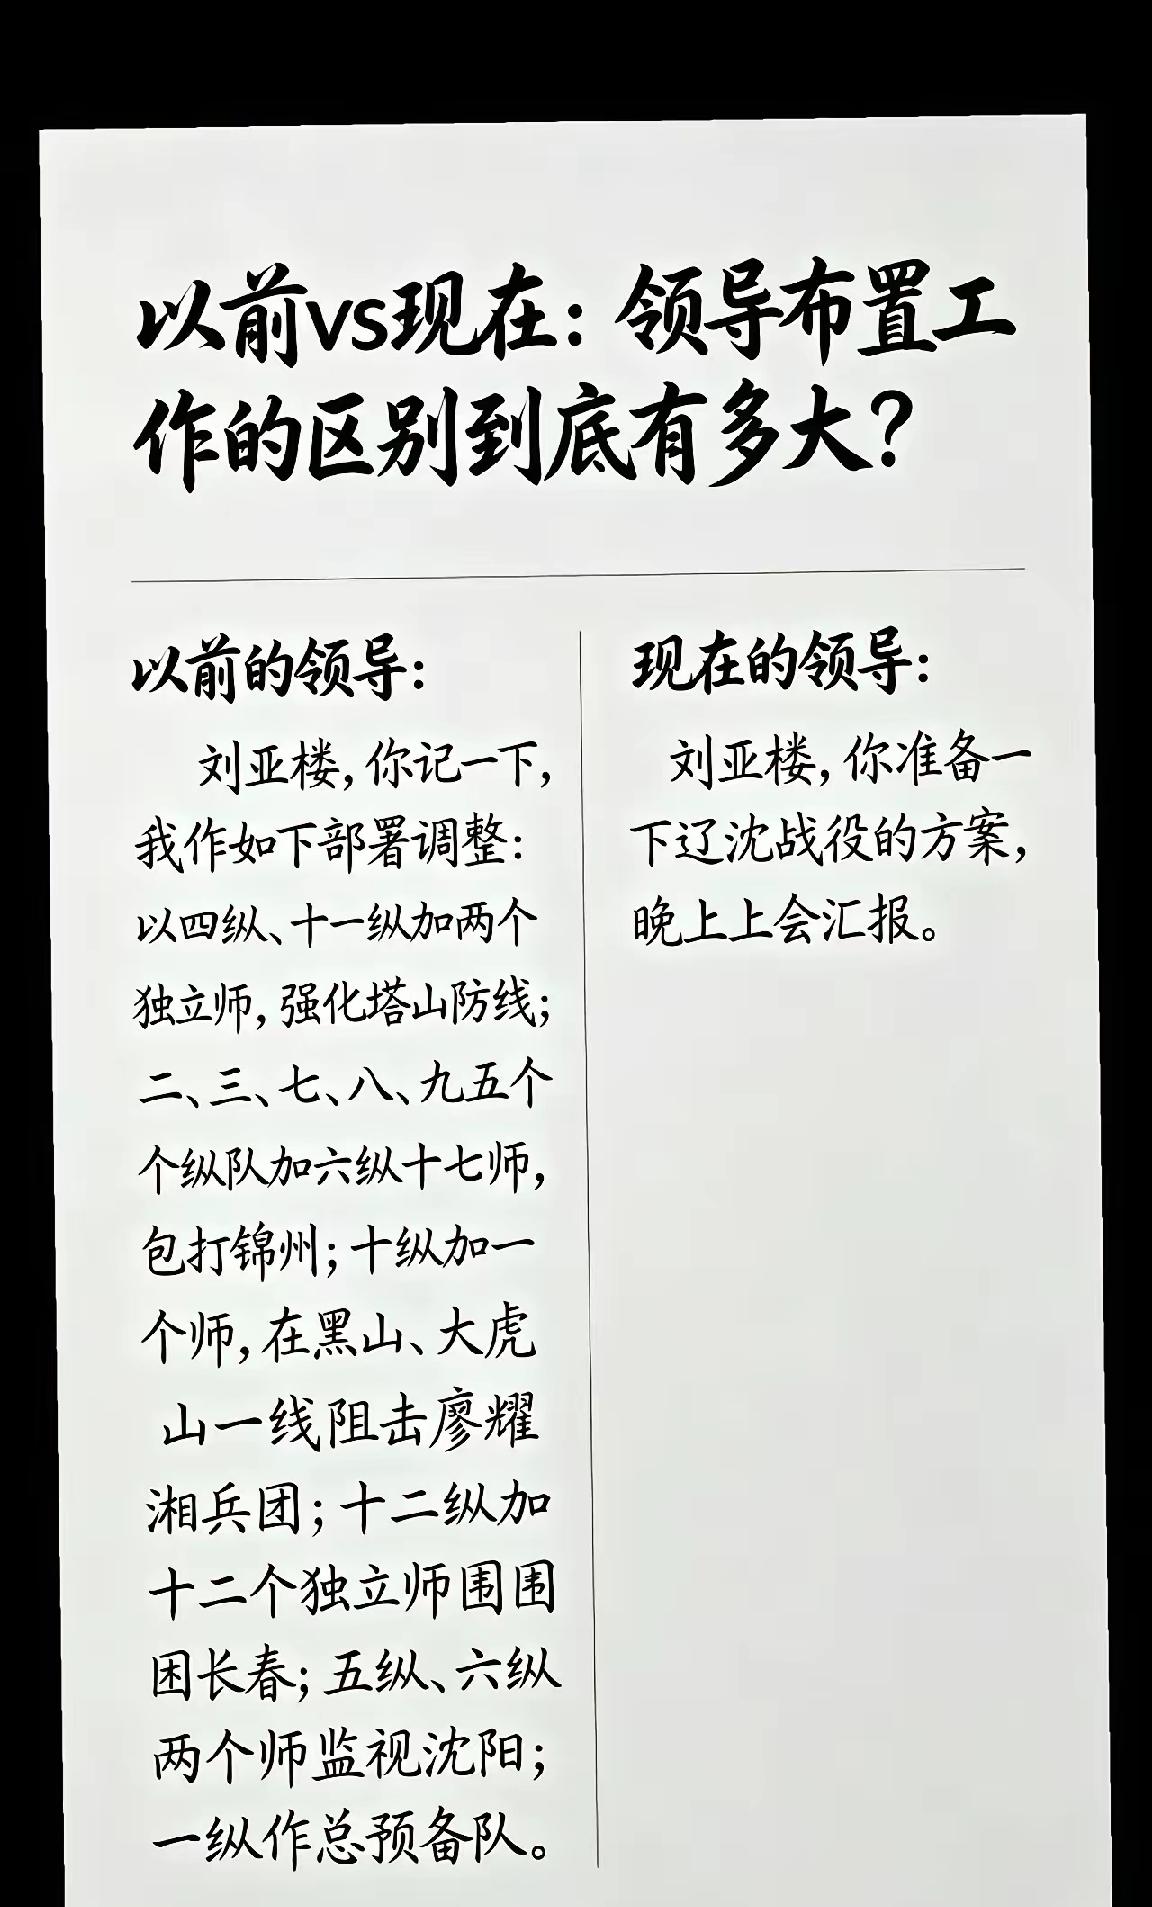 以前vs现在：领导布置工
作的区别到底有多大？
以前的领导：
刘亚楼，你记一下，
我作如下部署调整：
以四纵、十一纵加两个
独立师，强化塔山防线；
二、三、七、八、九五个
个纵队加六纵十七师，
包打锦州；十纵加一
个师，在黑山、大虎
山一线阻击廖耀
湘兵团；十二纵加
十二个独立师围围
困长春；五纵、六纵
两个师监视沈阳；
一纵作总预备队。
现在的领导：
刘亚楼，你准备一
下辽沈战役的方案，
晚上上会汇报。